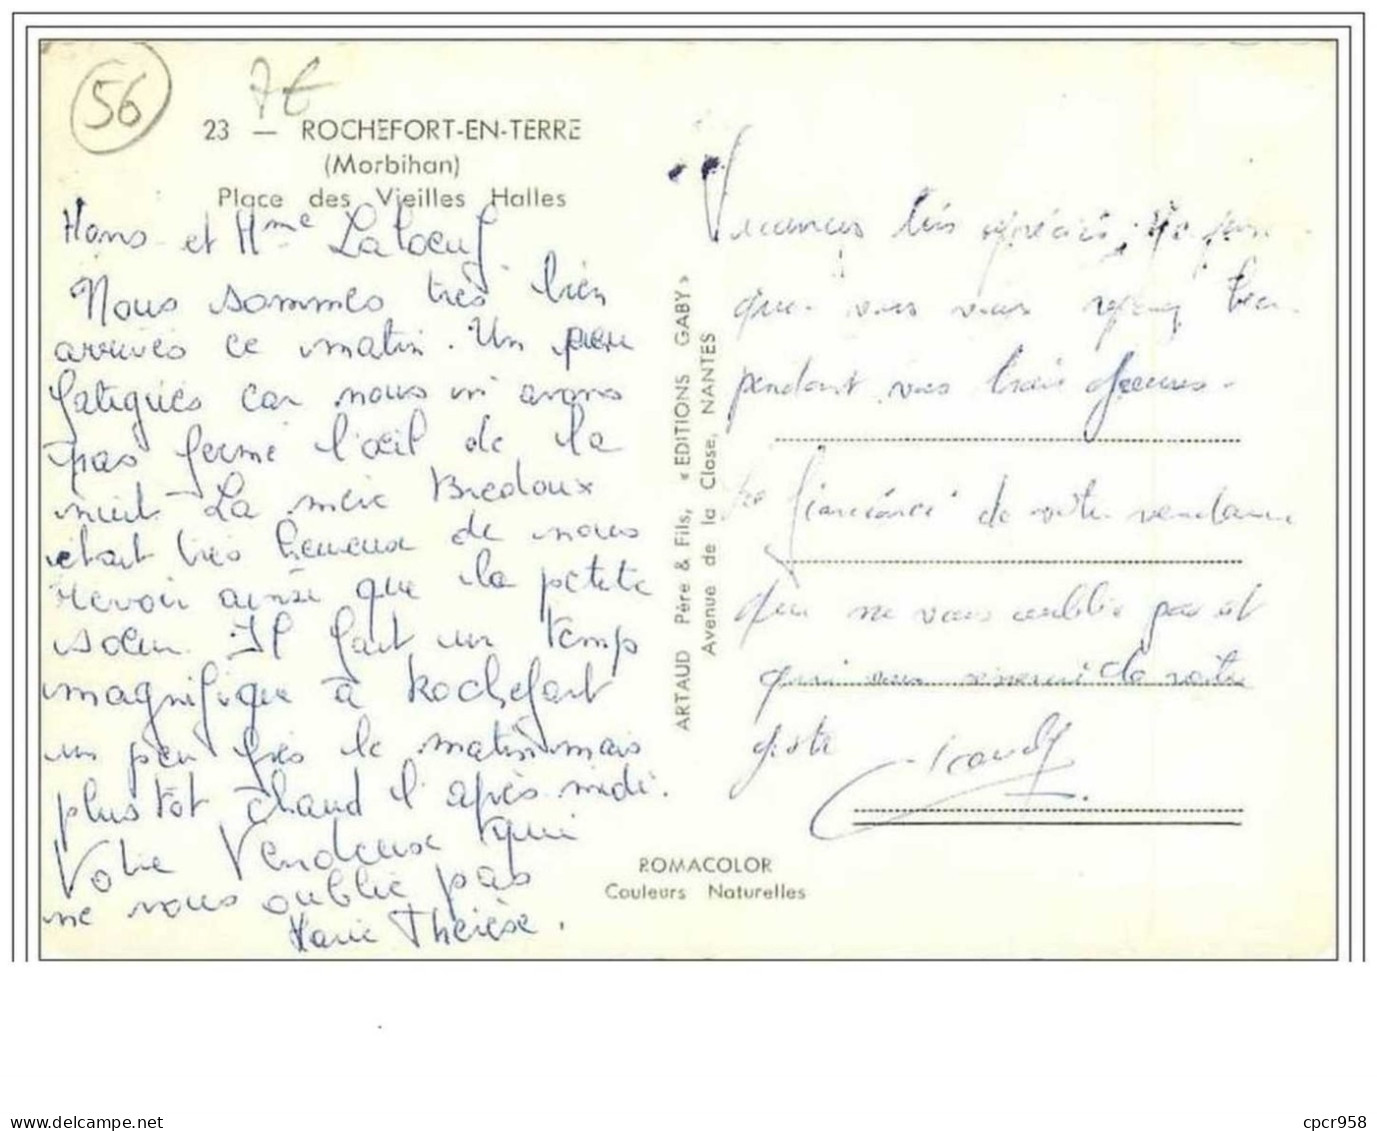 56
7€
23 — ROCHEFORT-EN-TERRE
(Morbihan)
Place des Vieilles Halles
Mons et Mme Laloeuf
Nous sommes très bien
arrivés ce matin. Un peu
fatigués car nous n'avons
pas fermé l'œil de la
nuit. La mère Bredoux
était très heureuse de nous
revoir ainsi que la petite
sœur. Il fait un temp
magnifique à Rochefort
un peu gris le matin mais
plus tot chaud l'après-midi.
Votre Vendeuse qui
ne vous oublie pas
Marie Thérèse.
ARTAUD Père & Fils, « EDITIONS GABY »
Avenue de la Close, NANTES
Vacances très
que vous vous
pendant vos trois
de votre vendeuse
qui ne vous oublie pas et
qui vous de votre
geste
ROMACOLOR
Couleurs Naturelles
cpcr958